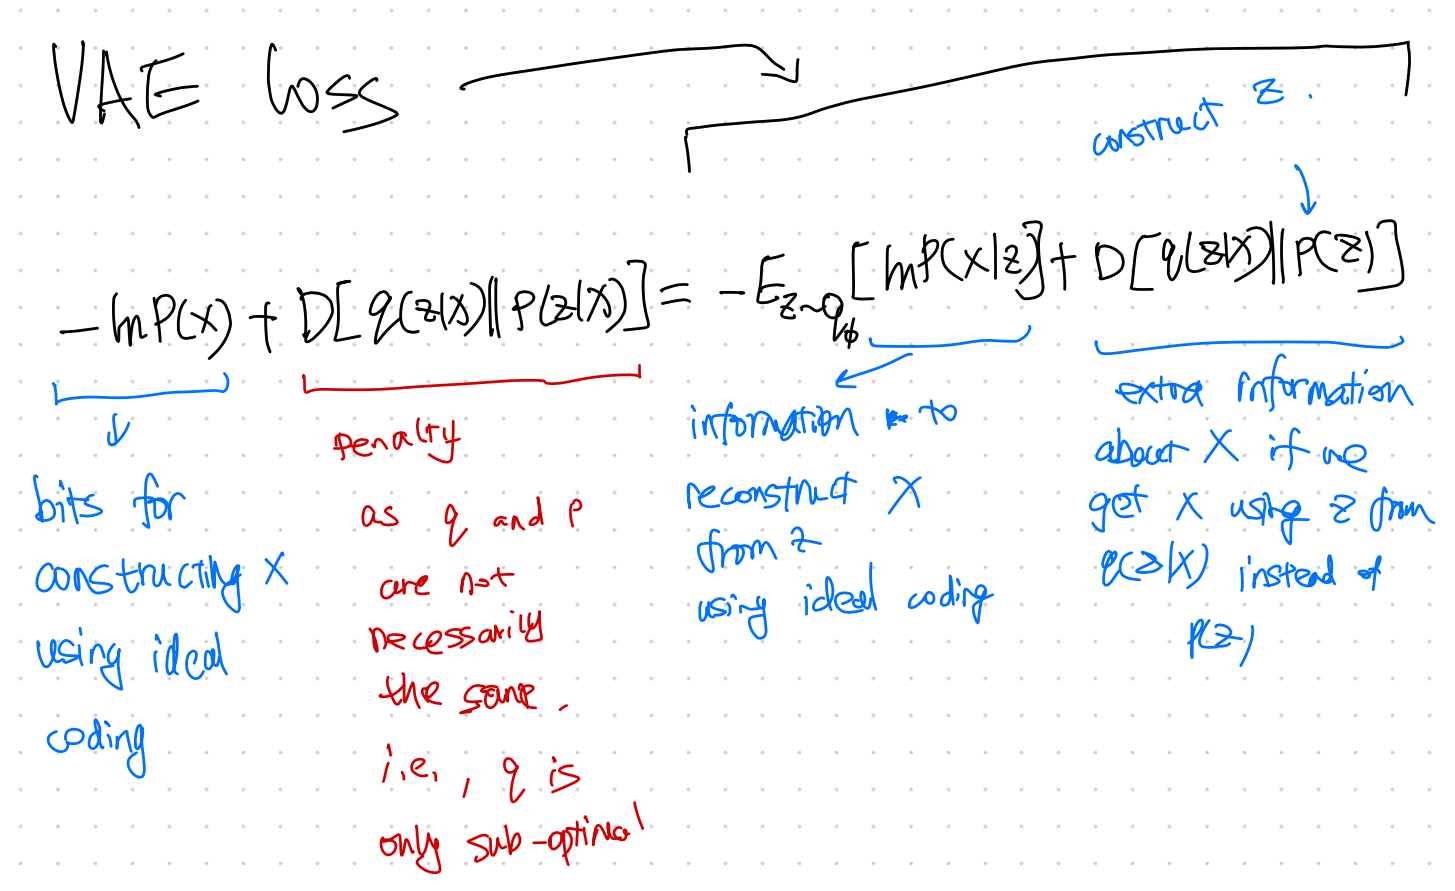 VAE loss
construct z.
-ln P(x) + D[q(z|x)||P(z|x)] = -E_{z~q_ϕ}[ln P(x|z)] + D[q(z|x)||P(z)]
bits for
constructing x
using ideal
coding
Penalty
as q and p
are not
necessarily
the same.
i.e., q is
only sub-optimal
information to
reconstruct x
from z
using ideal coding
extra information
about x if we
get x using z from
q(z|x) instead of
p(z)